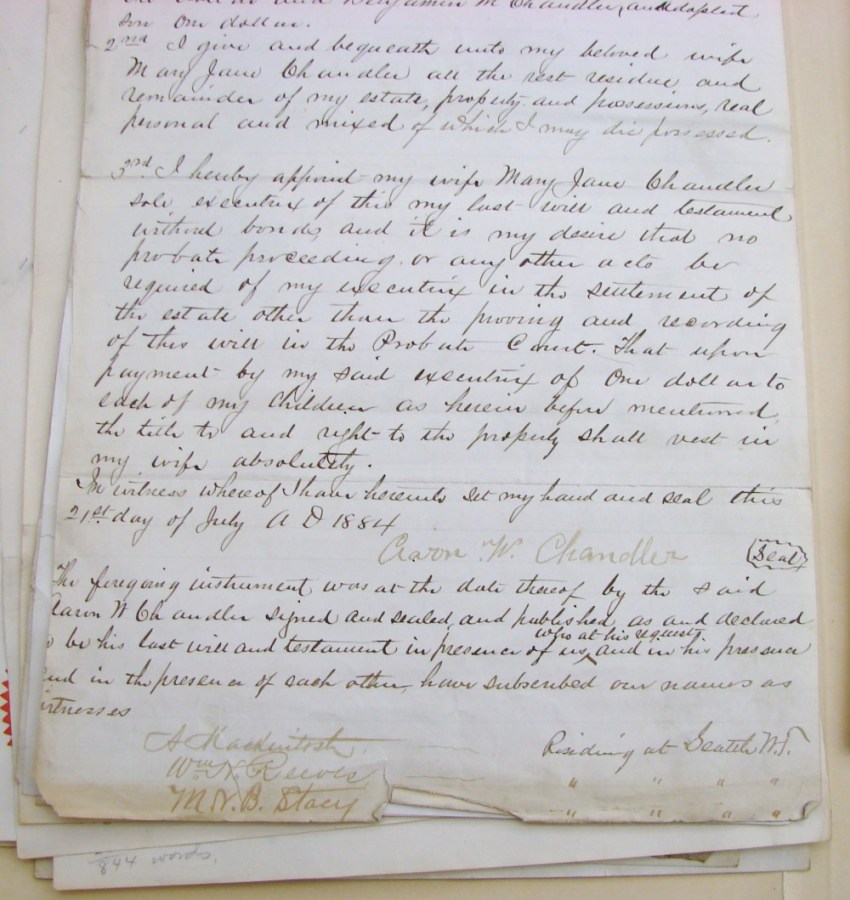 and Benjamin M Chandler, and adopted
son One dollar.
2nd I give and bequeath unto my beloved wife
Mary Jane Chandler all the rest residue and
remainder of my estate, property and possessions, real
personal and mixed of which I may die possessed.
3rd. I hereby appoint my wife Mary Jane Chandler
sole executrix of this my last will and testament
without bonds, and it is my desire that no
probate proceeding or any other acts be
required of my executrix in the settlement of
the estate other than the proving and recording
of this will in the Probate Court. That upon
payment by my said executrix of One dollar to
each of my children as herein before mentioned,
the title to and right to the property shall vest in
my wife absolutely.
In witness whereof I have hereunto set my hand and seal this
21st day of July A D 1884
Aaron W. Chandler Seal
The foregoing instrument was at the date thereof by the said
Aaron W Chandler signed and sealed, and published, as and declared
who at his request
to be his last will and testament in presence of us, and in his presence
and in the presence of each other, have subscribed our names as
witnesses
A Mackintosh Residing at Seattle W.T.
Wm N. Reeves " " " "
M N. B. Stacy " " " "
844 words.